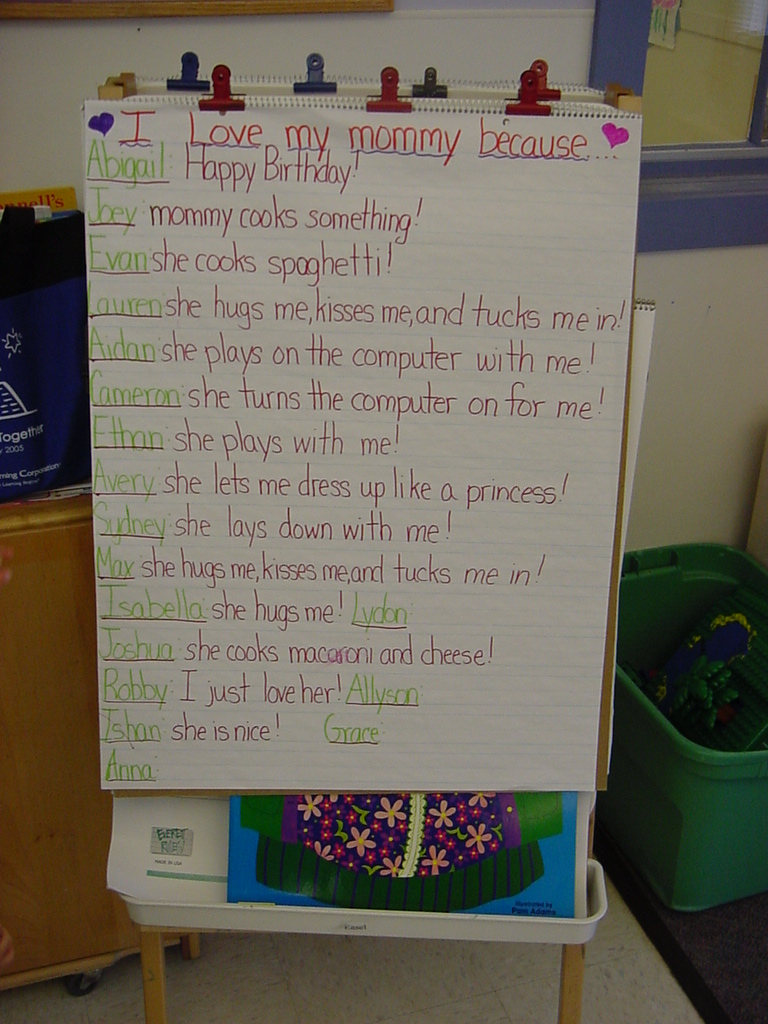 I Love my mommy because...
Abigail: Happy Birthday!
Joey: mommy cooks something!
Evan: she cooks spaghetti!
Lauren: she hugs me, kisses me, and tucks me in!
Aidan: she plays on the computer with me!
Cameron: she turns the computer on for me!
Ethan: she plays with me!
Avery: she lets me dress up like a princess!
Sydney: she lays down with me!
Max: she hugs me, kisses me, and tucks me in!
Isabella: she hugs me! Lydon:
Joshua: she cooks macaroni and cheese!
Robby: I just love her! Allyson:
Ishan: she is nice! Grace:
Anna:
nnell's
Together
2005
ming Corporation
MADE IN USA
Illustrated by
Pam Adams
Easel